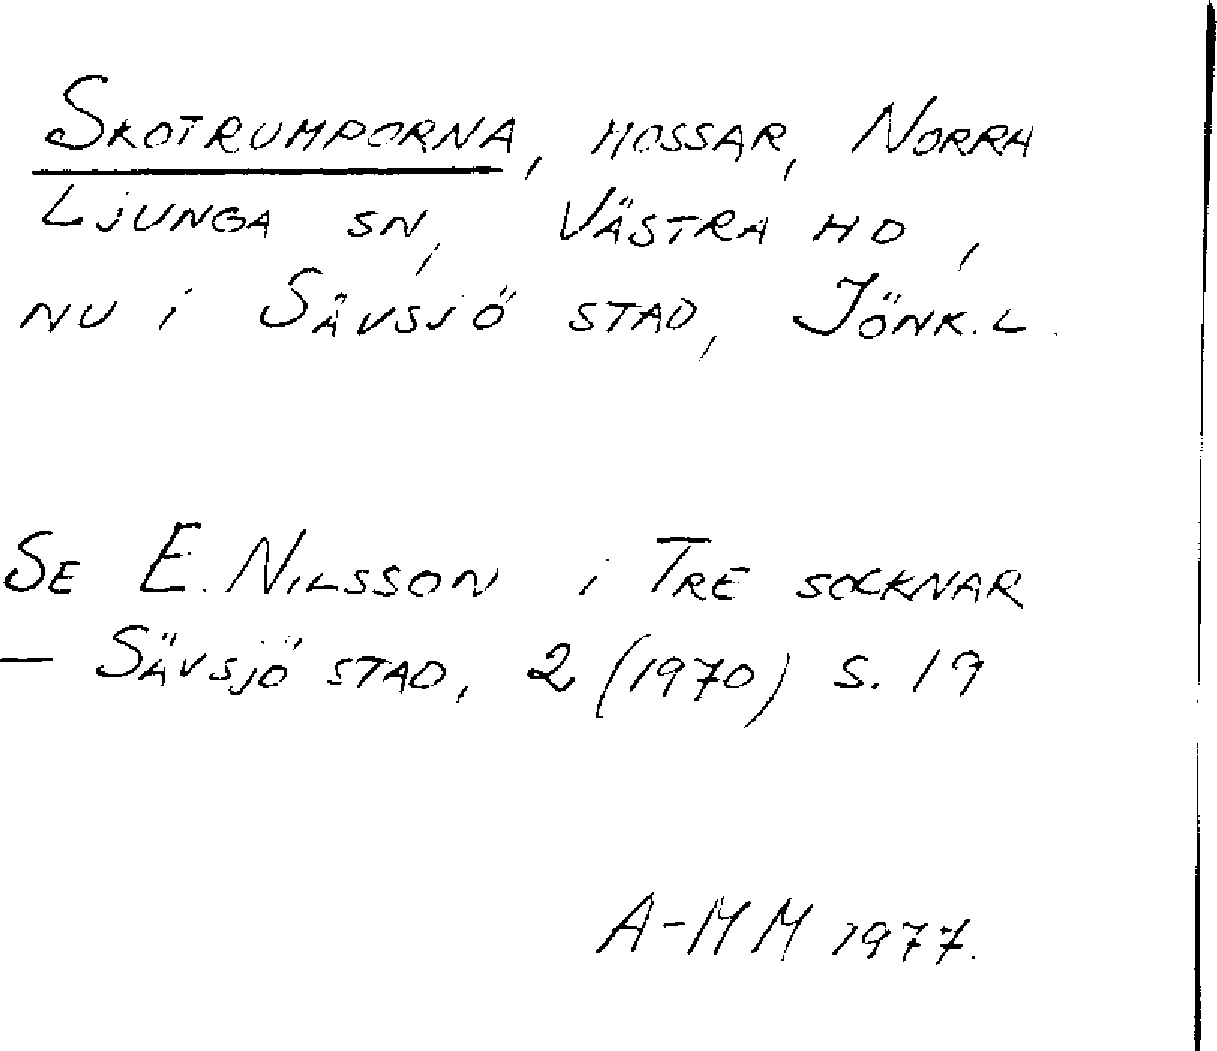 SKOTRUMPORNA, MOSSAR, NORRA
LJUNGA SN, VÄSTRA HD,
NU i SÄVSJÖ STAD, JÖNK.L.
SE E. NILSSON i TRE SOCKNAR
— SÄVSJÖ STAD, 2 (1970) S. 19
A-MM 1977.